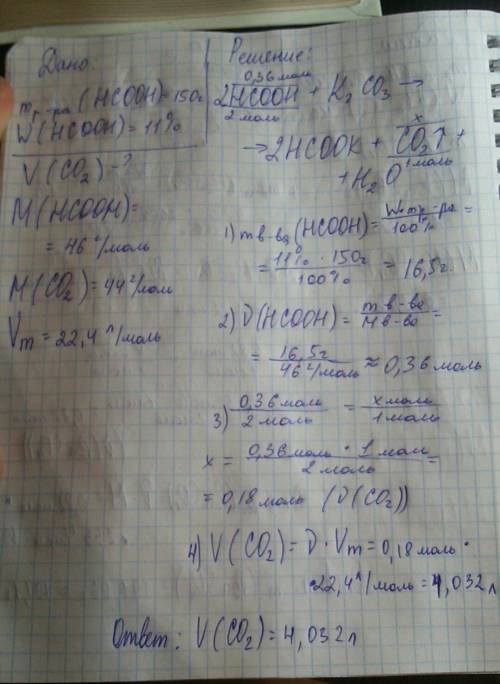 Дано
m р-ра (HCOOH) = 150г
W (HCOOH) = 11%
V (CO2) - ?
M (HCOOH) =
= 46 г/моль
M (CO2) = 44 г/моль
Vm = 22,4 л/моль
Решение:
0,36 моль
2HCOOH + K2CO3 →
2 моль
x
→ 2HCOOK + CO2↑ +
1 моль
+ H2O
1) m в-ва (HCOOH) = W·m р-ра / 100% =
= 11% · 150г / 100% = 16,5г
2) ν (HCOOH) = m в-ва / M в-ва =
= 16,5г / 46 г/моль ≈ 0,36 моль
3) 0,36 моль / 2 моль = x моль / 1 моль
x = 0,36 моль · 1 моль / 2 моль =
= 0,18 моль (ν(CO2))
4) V(CO2) = ν · Vm = 0,18 моль ·
· 22,4 л/моль = 4,032 л
Ответ: V(CO2) = 4,032 л